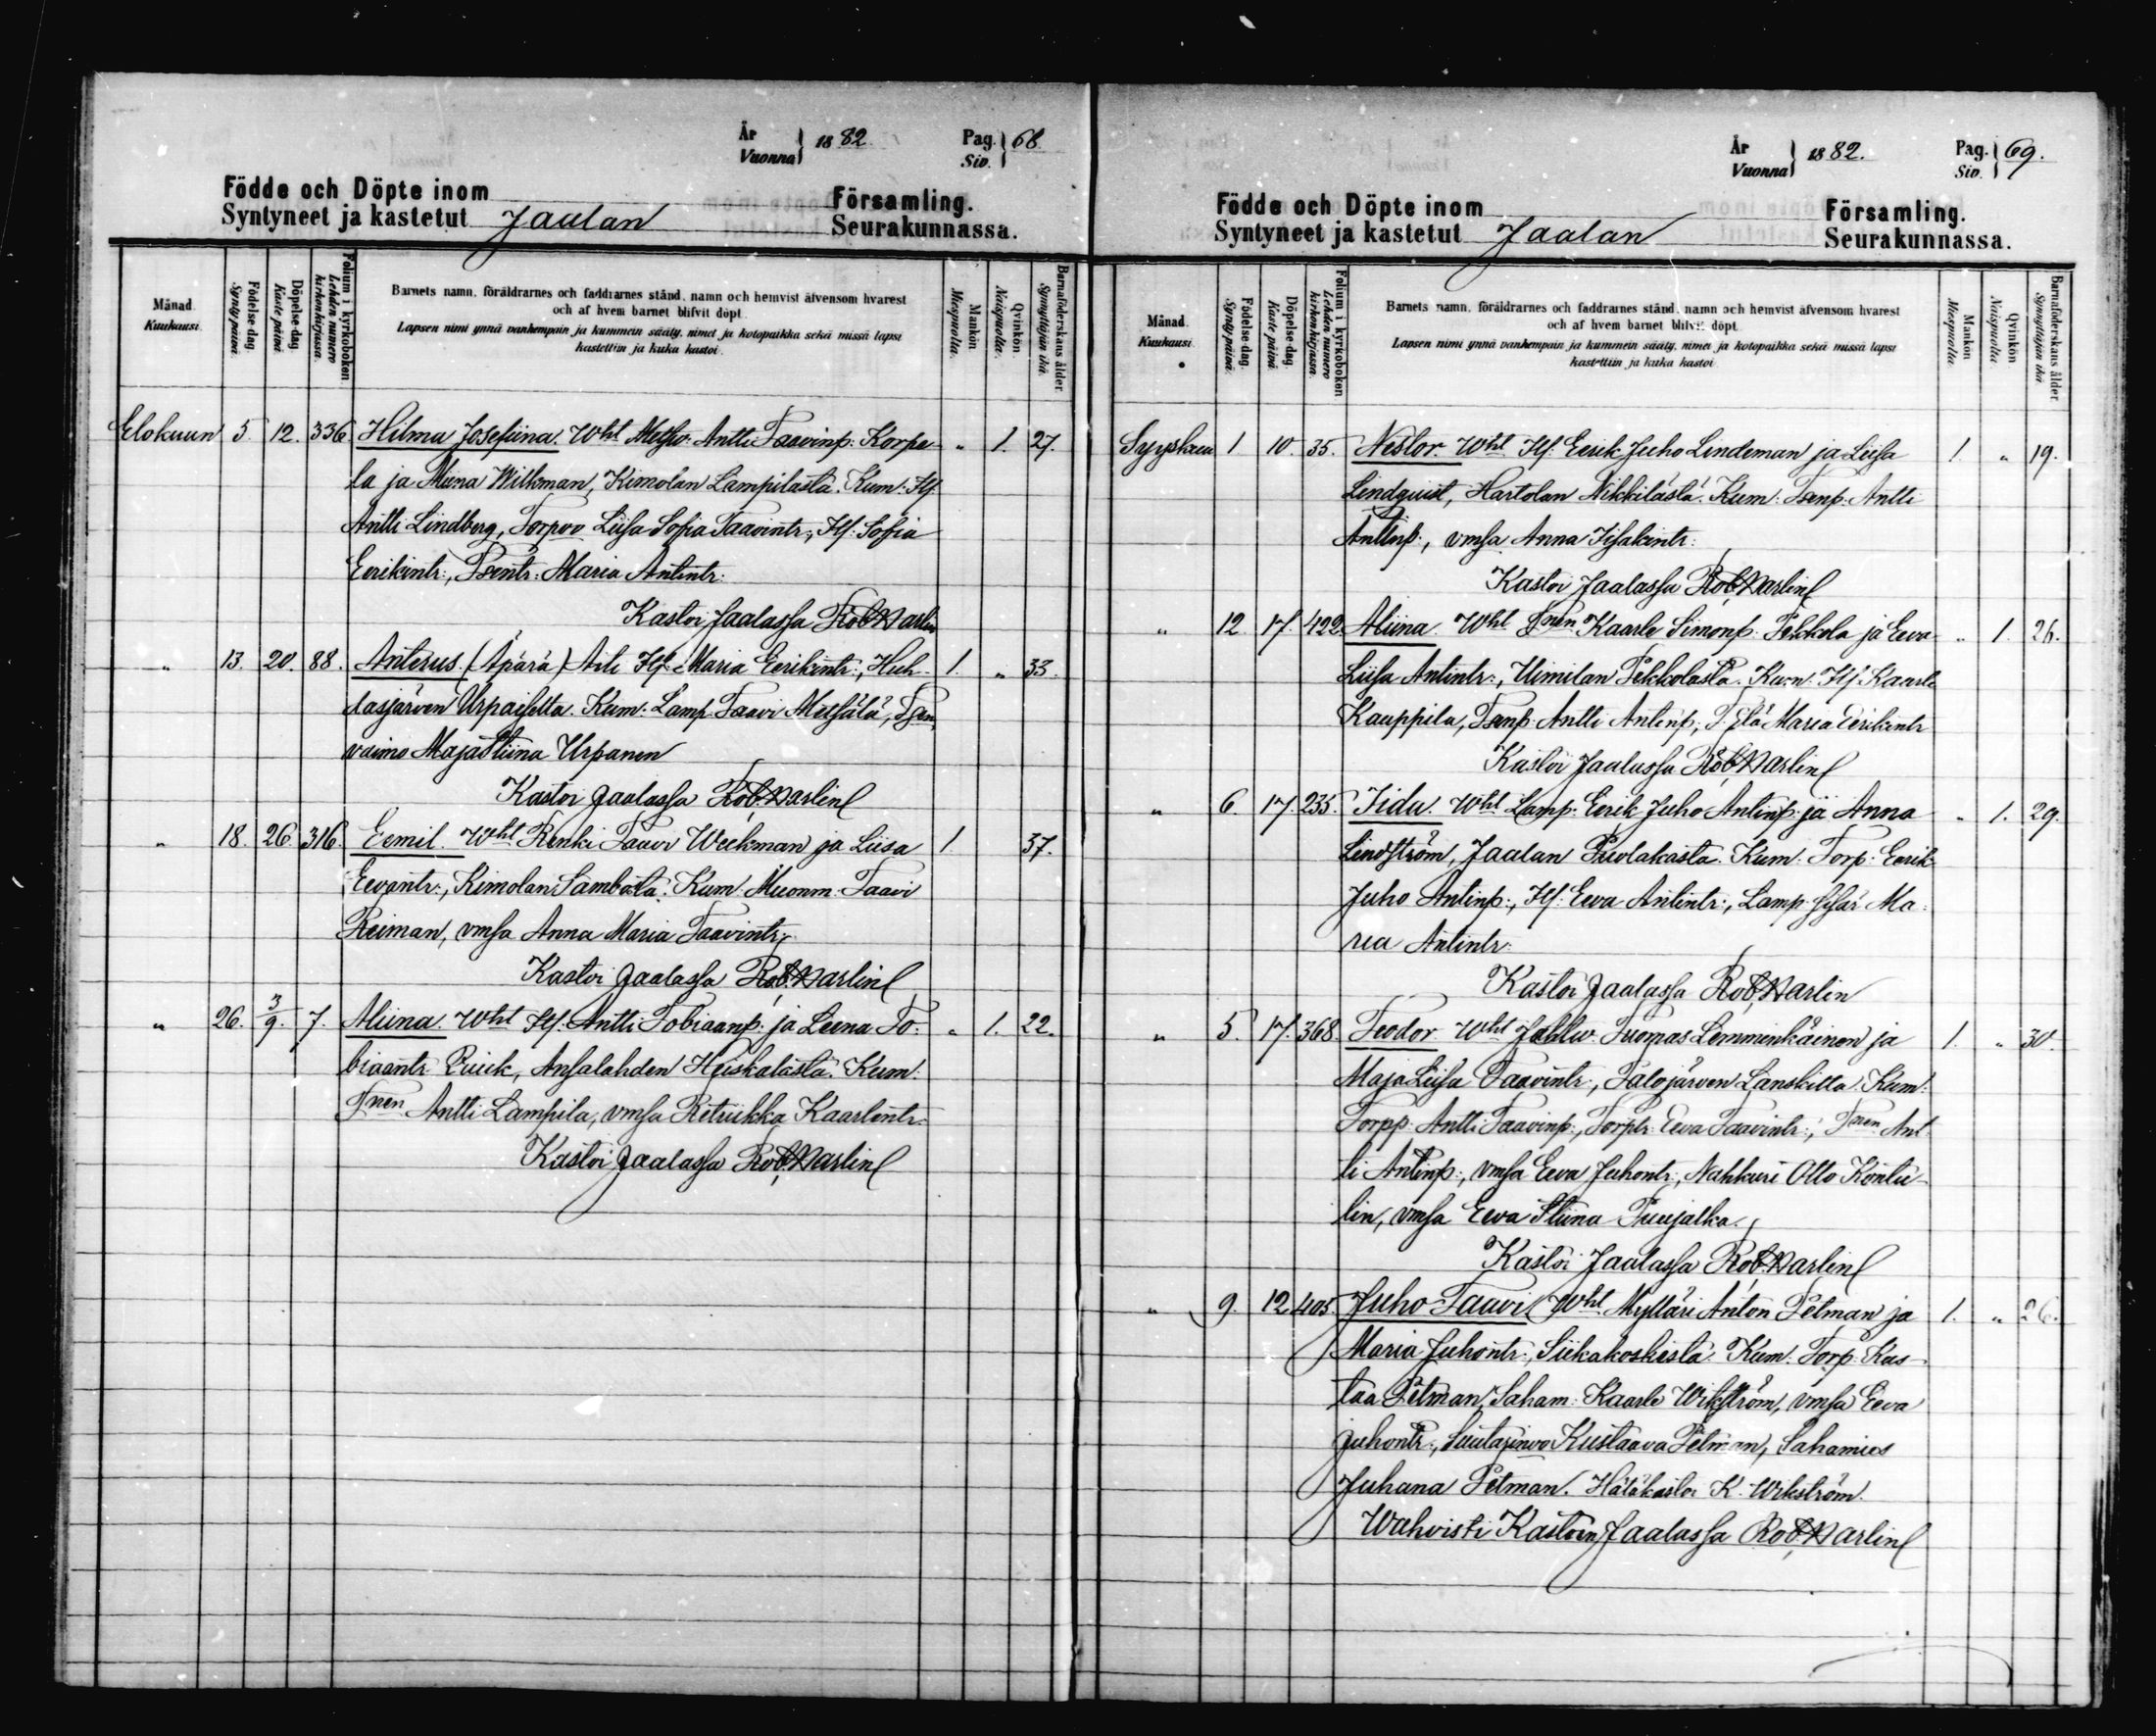 År Vuonna 1882. Pag. Siv. 68
Födde och Döpte inom Församling.
Syntyneet ja kastetut Jaalan Seurakunnassa.
Månad. Kuukausi.
Födelse-dag. Synty päivä.
Döpelse-dag. Kaste päivä.
Folium i kyrkoboken Lehden numero kirkonkirjassa.
Barnets namn, föräldrarnes och faddrarnes stånd, namn och hemvist äfvensom hvarest
och af hvem barnet blifvit döpt.
Lapsen nimi ynnä vanhempain ja kummein sääty, nimet ja kotopaikka sekä missä lapsi
kastettiin ja kuka kastoi.
Mankön. Miespuolta.
Qvinkön. Naispuolta.
Barnaföderskans ålder. Synnyttäjän ikä.
Elokuun 5. 12. 336. Hilma Josefiina. Wht Metsw. Antti Taavinp: Korpe- „ 1. 27.
la ja Miina Wilkman, Kimolan Lampilasta. Kum: Itf.
Antti Lindberg, Torpvv Liisa Sofia Taavintr:, Itf: Sofia
Eerikintr:, Psentr: Maria Antintr:
Kastoi Jaalassa Rob. Warlin
„ 13. 20. 88. Anterus. (Äpärä) Äiti Itf: Maria Eerikintr:, Huh- 1. „ 33.
dasjärven Urpaiselta. Kum: Lamp. Taavi Metsälä, Tsen
vaimo Maja Stiina Urpanen
Kastoi Jaalassa Rob. Warlin
„ 18. 26. 316. Eemil. Wht Renki Taavi Weckman ja Liisa 1. 37.
Eevantr:, Kimolan Sambasta. Kum: Muonm. Taavi
Reiman, vmsa Anna Maria Taavintr:
Kastoi Jaalassa Rob. Warlin
„ 26. 3/9. 7. Aliina. Wht Itf: Antti Tobiaanp: ja Leena To- „ 1. 22.
biaantr Quick, Ansalahden Heiskalasta. Kum:
Tnen Antti Lampila, vmsa Retriikka Kaarlentr:
Kastoi Jaalassa Rob. Warlin
År Vuonna 1882. Pag. Siv. 69.
Födde och Döpte inom Församling.
Syntyneet ja kastetut Jaalan Seurakunnassa.
Månad. Kuukausi.
Födelse-dag. Synty päivä.
Döpelse-dag. Kaste päivä.
Folium i kyrkoboken Lehden numero kirkonkirjassa.
Barnets namn, föräldrarnes och faddrarnes stånd, namn och hemvist äfvensom hvarest
och af hvem barnet blifvit döpt.
Lapsen nimi ynnä vanhempain ja kummein sääty, nimet ja kotopaikka sekä missä lapsi
kastettiin ja kuka kastoi.
Mankön. Miespuolta.
Qvinkön. Naispuolta.
Barnaföderskans ålder. Synnyttäjän ikä.
Syyskuu 1 10. 35. Nestor. Wht Itf: Eerik Juho Lindeman ja Liisa 1. „ 19.
Lindquist, Hartolan Nikkilästä. Kum: Tsenp. Antti
Anttinp:, vmsa Anna Iisakintr:
Kastoi Jaalassa Rob. Warlin
„ 12. 17. 422. Aliina. Wht Tnen Kaarle Simonp. Pekkola ja Eeva „ 1. 26.
Liisa Antintr:, Uimilan Pekkolasta. Kum: Itf: Kaarle
Kauppila, Tsenp: Antti Antinp:, T. Maria Eerikintr
Kastoi Jaalassa Rob. Warlin
„ 6. 17. 235. Iida. Wht Lamp: Eerik Juho Antinp: ja Anna „ 1. 29.
Lindström, Jaalan Puolakasta. Kum: Torp: Eerik
Juho Antinp:, Itf: Eeva Antintr:, Lamp: sisar Ma-
ria Antintr:
Kastoi Jaalassa Rob. Warlin
„ 5. 17. 368. Teodor. Wht Tuomas Lemminkäinen ja 1. „ 30.
Maja Liisa Taavintr:, Palojärven Lanskilta. Kum:
Torpp: Antti Taavinp:, Torptr: Eeva Taavintr:, Tnen Ant-
ti Antinp:, vmsa Eeva Juhontr:, Nahkuri Otto Köntü-
lin, vmsa Eeva Stiina Puujalka.
Kastoi Jaalassa Rob. Warlin
„ 9. 12. 405. Juho Taavi. Wht Mylläri Anton Pelman ja 1. „ 26.
Maria Juhontr:, Siikakoskesta. Kum: Torp: Kus-
taa Pelman, Saham: Kaarle Wikström, vmsa Eeva
Juhontr:, Kustaava Pelman, Sahamies
Juhana Pelman. Hätäkastoi K. Wikström.
Wahvisti Kasteen Jaalassa Rob. Warlin